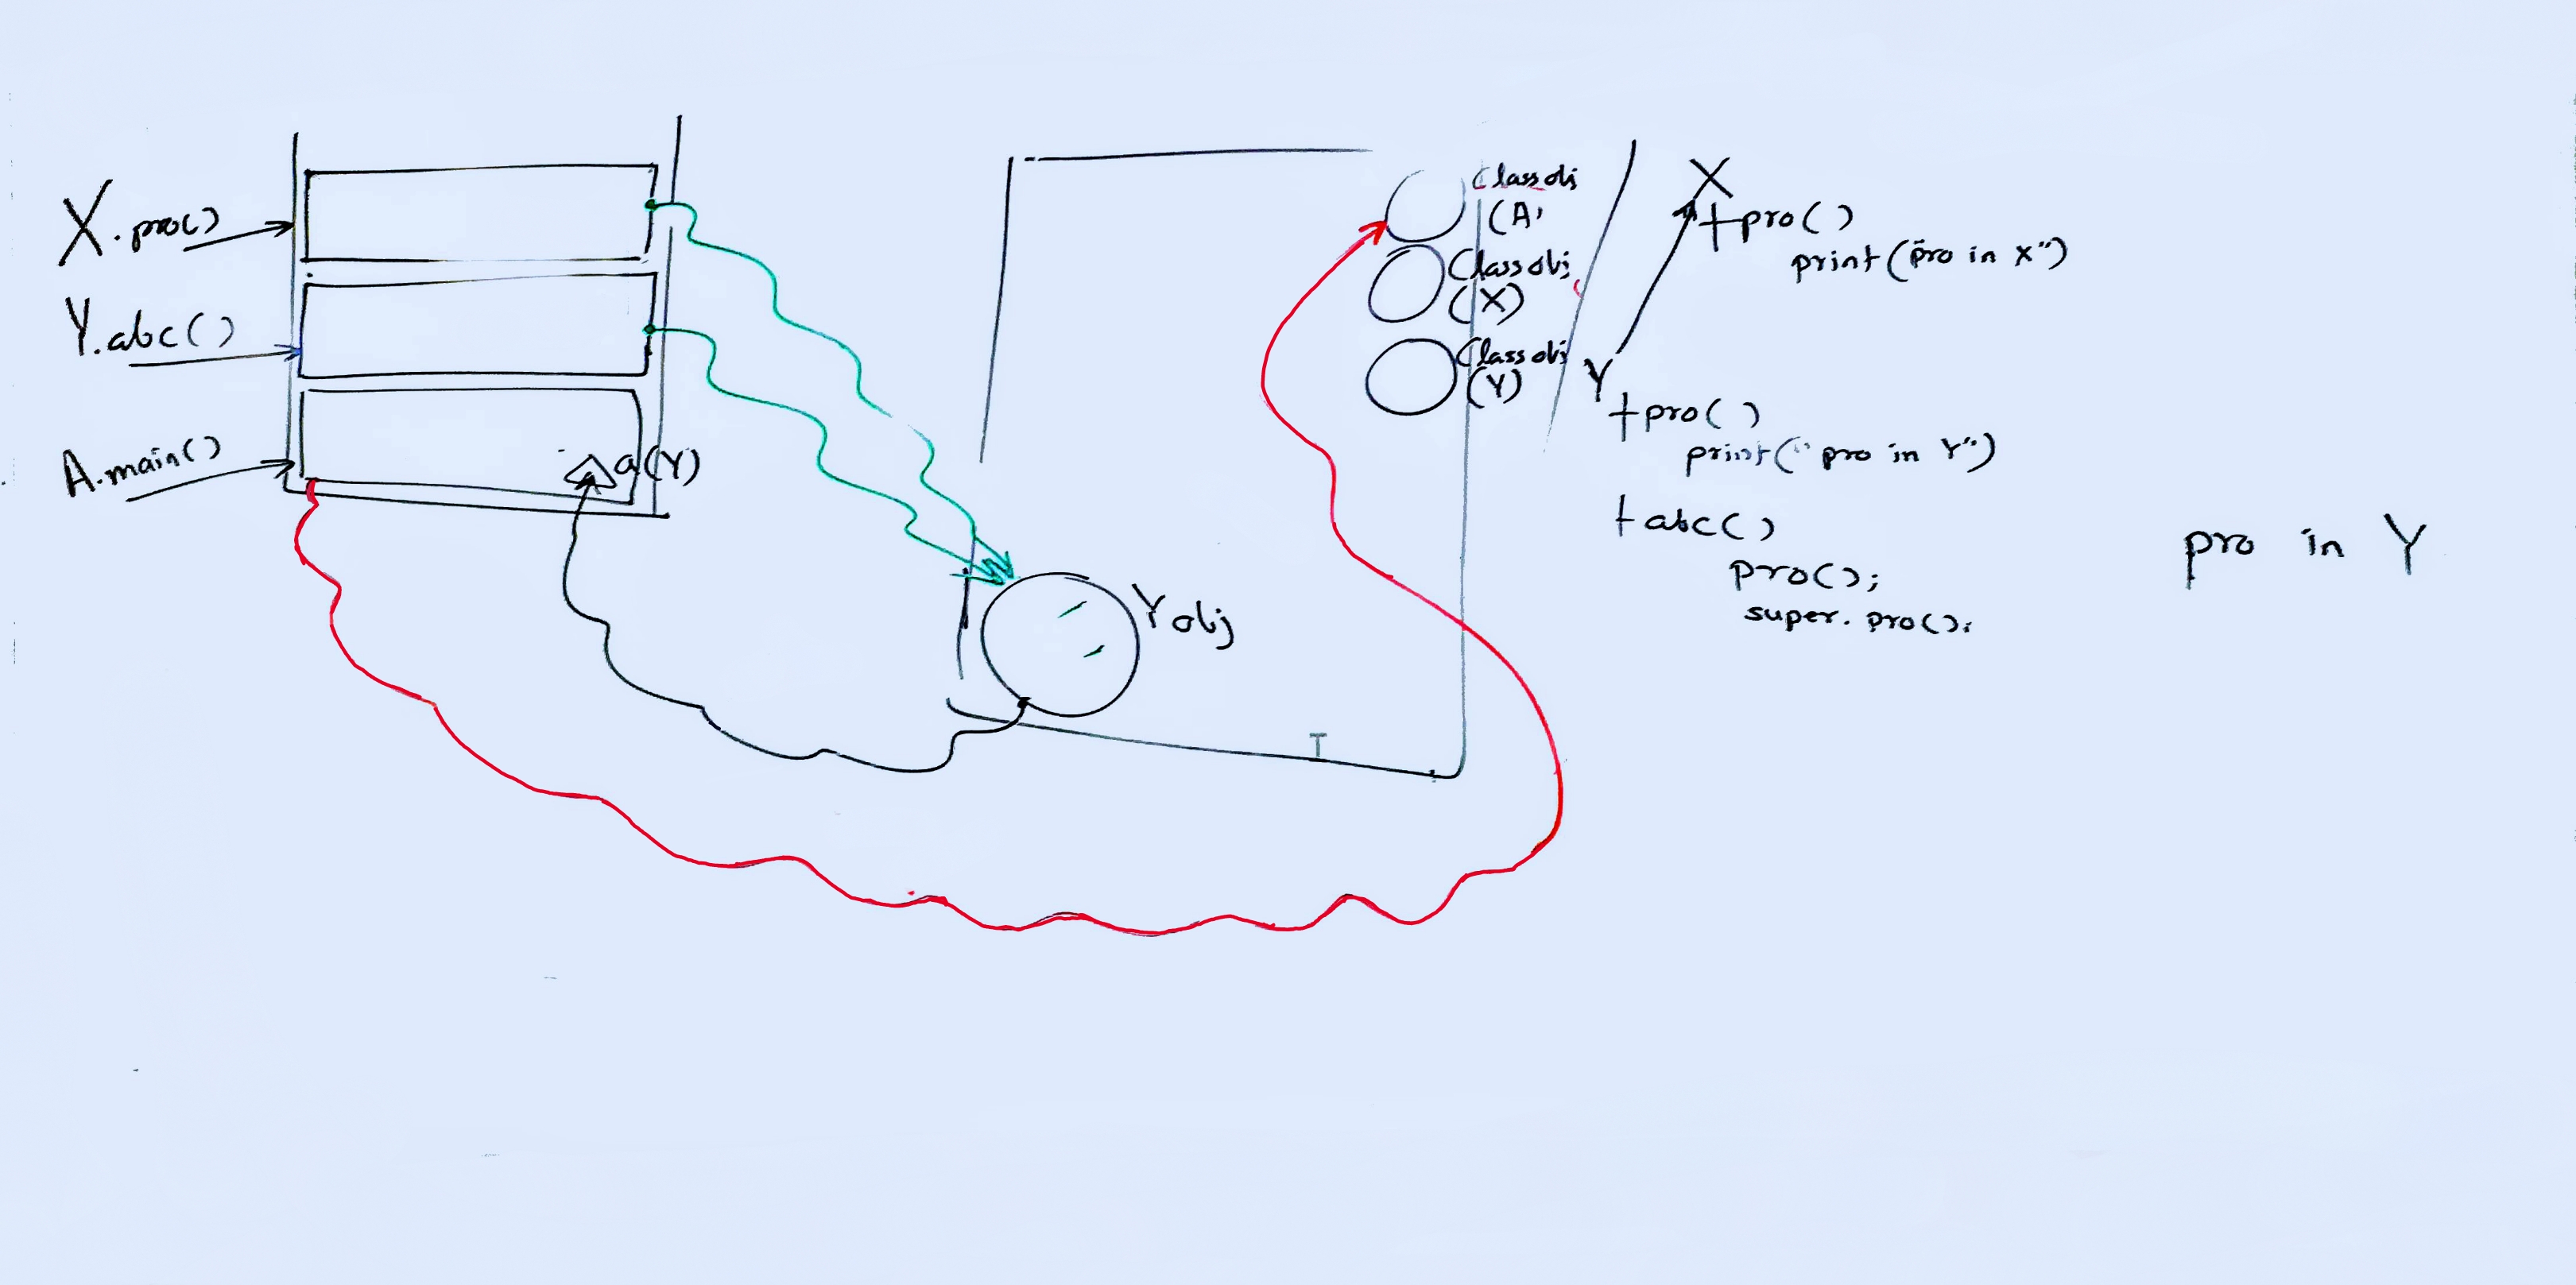 X.pro()
Y.abc()
A.main()
a(Y)
Y obj
Class obj
(A)
Class obj
(X)
Class obj
(Y)
X
+pro()
print("pro in X")
Y
+pro()
print("pro in Y")
+abc()
pro();
super.pro();
pro in Y